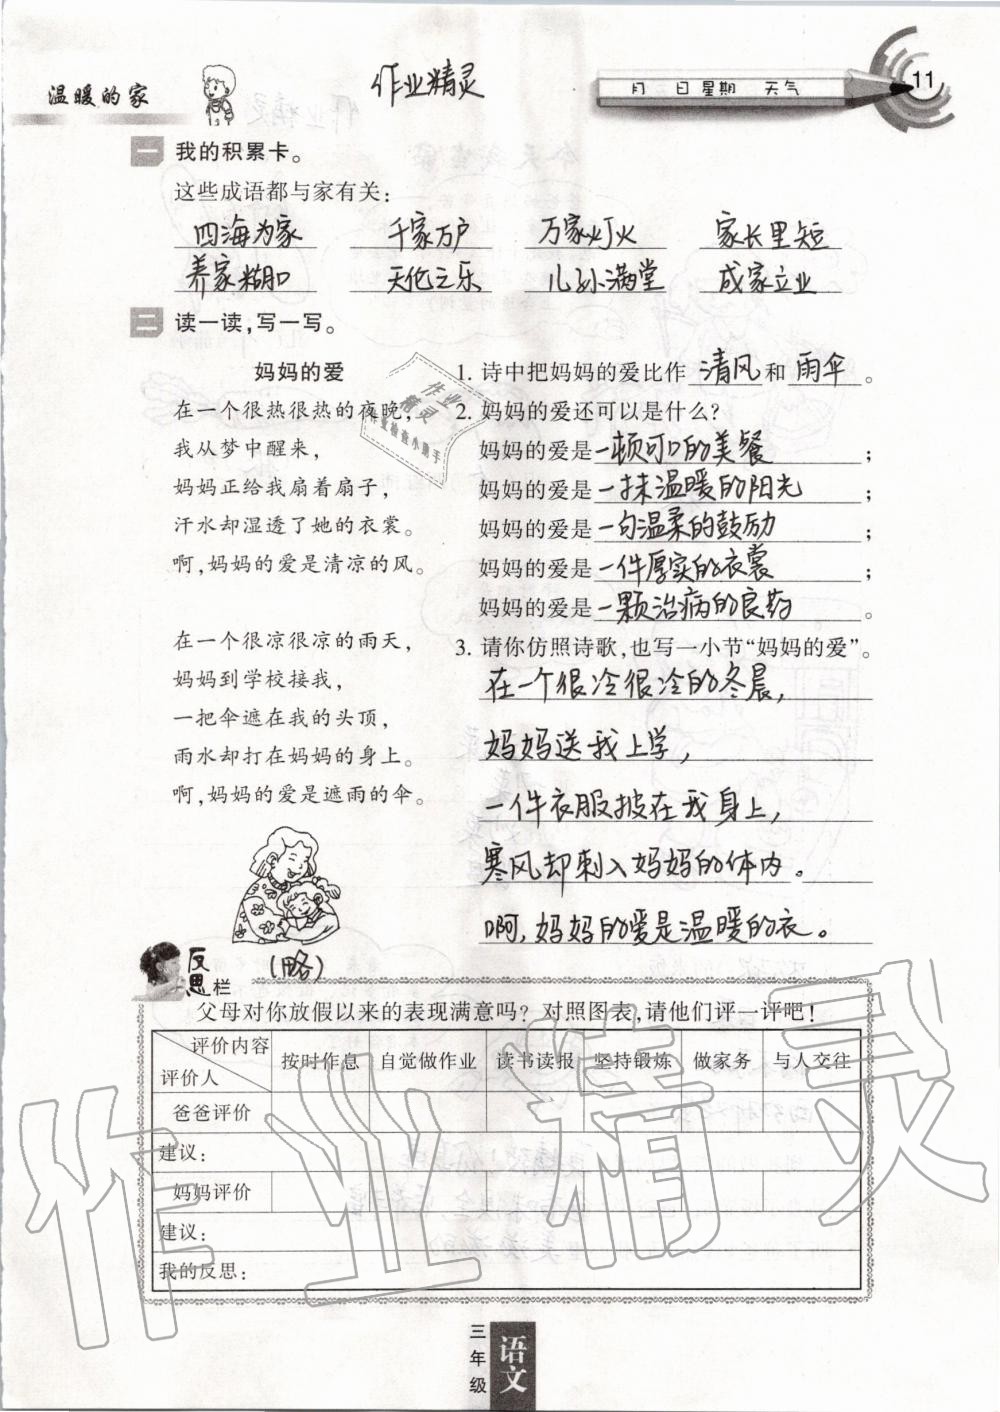 温暖的家
作业精灵
月 日 星期 天气
11
一 我的积累卡。
这些成语都与家有关:
四海为家 千家万户 万家灯火 家长里短
养家糊口 天伦之乐 儿孙满堂 成家立业
二 读一读,写一写。
妈妈的爱
在一个很热很热的夜晚,
我从梦中醒来,
妈妈正给我扇着扇子,
汗水却湿透了她的衣裳。
啊,妈妈的爱是清凉的风。
在一个很凉很凉的雨天,
妈妈到学校接我,
一把伞遮在我的头顶,
雨水却打在妈妈的身上。
啊,妈妈的爱是遮雨的伞。
1. 诗中把妈妈的爱比作 清风 和 雨伞 。
2. 妈妈的爱还可以是什么?
妈妈的爱是一顿可口的美餐 ;
妈妈的爱是一抹温暖的阳光 ;
妈妈的爱是一句温柔的鼓励 ;
妈妈的爱是一件厚实的衣裳 ;
妈妈的爱是一颗治病的良药 。
3. 请你仿照诗歌,也写一小节“妈妈的爱”。
在一个很冷很冷的冬晨,
妈妈送我上学,
一件衣服披在我身上,
寒风却刺入妈妈的体内。
啊,妈妈的爱是温暖的衣。
作业
精灵
作业检查小助手
反思栏
(略)
父母对你放假以来的表现满意吗?对照图表,请他们评一评吧!
评价内容 按时作息 自觉做作业 读书读报 坚持锻炼 做家务 与人交往
评价人
爸爸评价
建议:
妈妈评价
建议:
我的反思:
作业精灵
三年级 语文